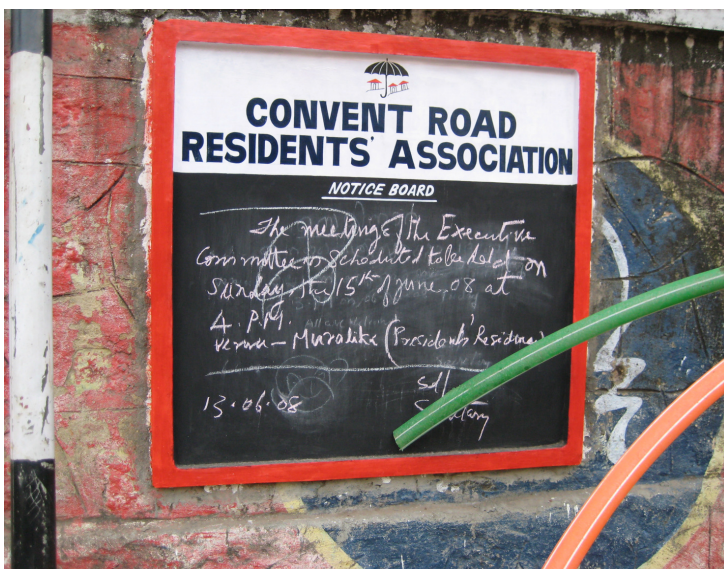 CONVENT ROAD
RESIDENTS' ASSOCIATION
NOTICE BOARD
The meeting of the Executive
Committee is Scheduled to be held on
Sunday, the 15th of June 08 at
4. P.M.
Venue - (Presidents' Residence)
Sd/
13.06.08 Secretary